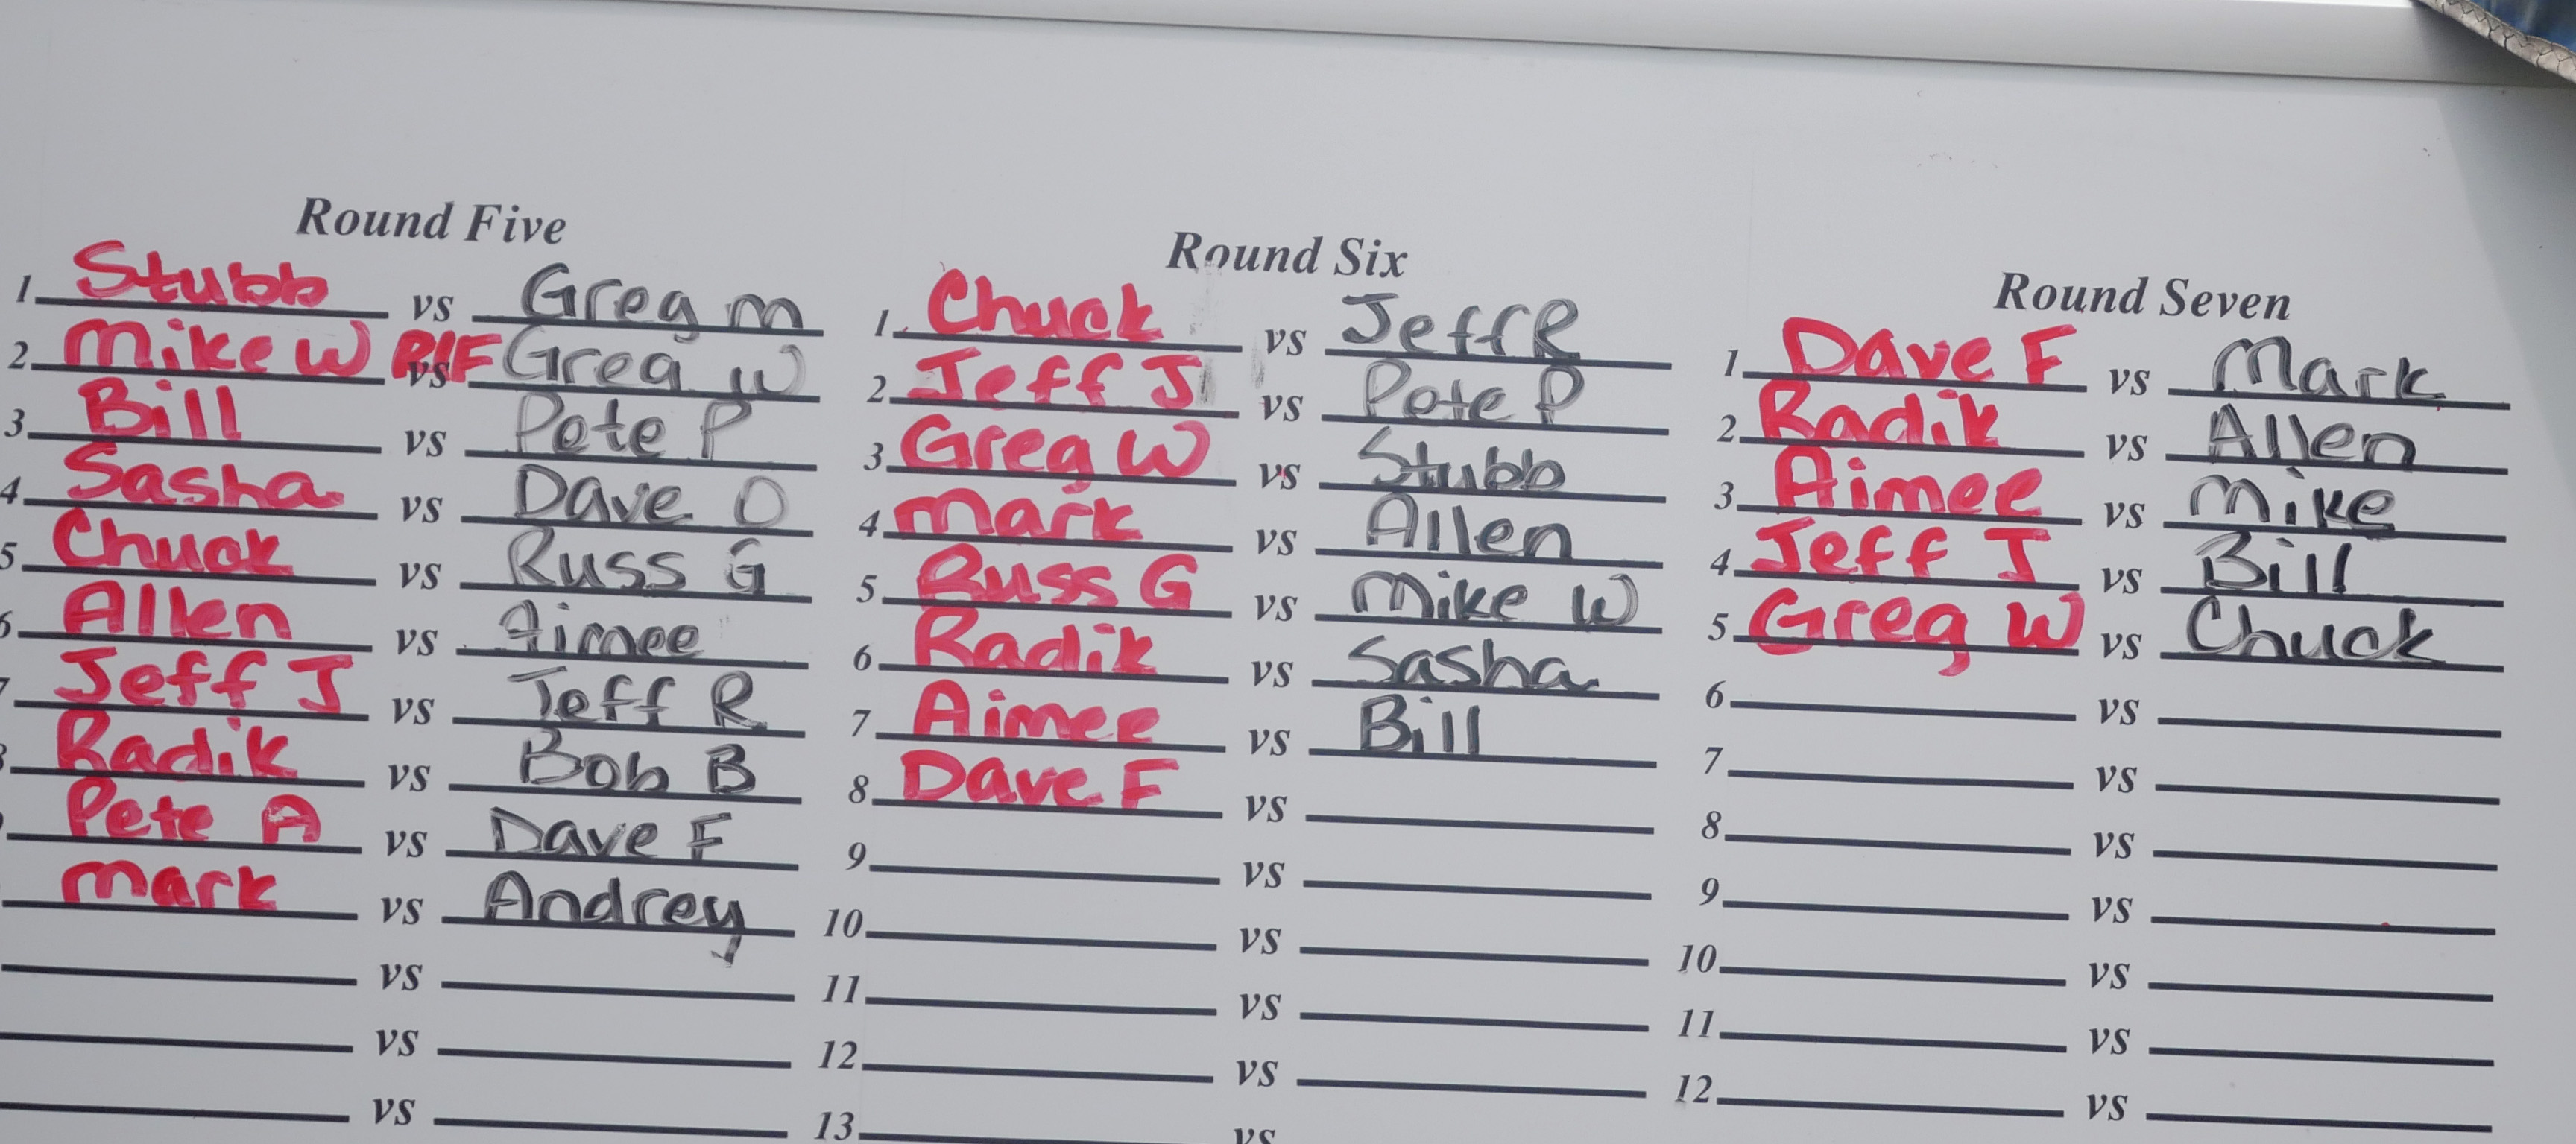 Round Five
1 Stubb vs Greg M
2 Mike W RIF vs Greg W
3 Bill vs Pete P
4 Sasha vs Dave O
5 Chuck vs Russ G
6 Allen vs Aimee
7 Jeff J vs Jeff R
8 Radik vs Bob B
Pete A vs Dave F
Mark vs Andrey
vs
vs
vs
Round Six
1 Chuck vs Jeff R
2 Jeff J vs Pete P
3 Greg W vs Stubb
4 Mark vs Allen
5 Russ G vs Mike W
6 Radik vs Sasha
7 Aimee vs Bill
8 Dave F vs
9 vs
10 vs
11 vs
12 vs
13 vs
Round Seven
1 Dave F vs Mark
2 Radik vs Allen
3 Aimee vs Mike
4 Jeff J vs Bill
5 Greg W vs Chuck
6 vs
7 vs
8 vs
9 vs
10 vs
11 vs
12 vs